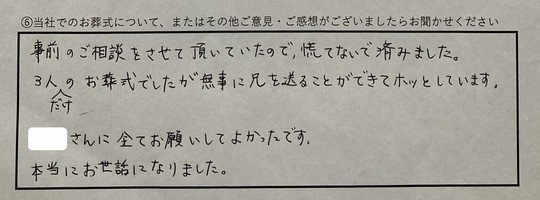 ⑥当社でのお葬式について、またはその他ご意見・ご感想がございましたらお聞かせください
事前のご相談をさせて頂いていたので、慌てないで済みました。
3人だけのお葬式でしたが無事に兄を送ることができてホッとしています。
さんに全てお願いしてよかったです。
本当にお世話になりました。